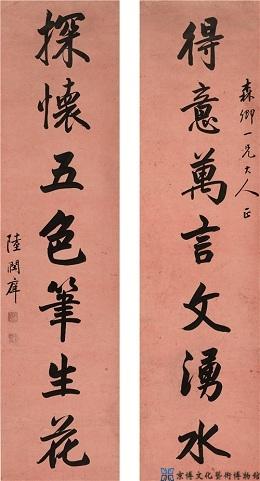 森卿一兄大人正
得意萬言文湧水
探懷五色筆生花
陸潤庠
京博文化藝術博物館